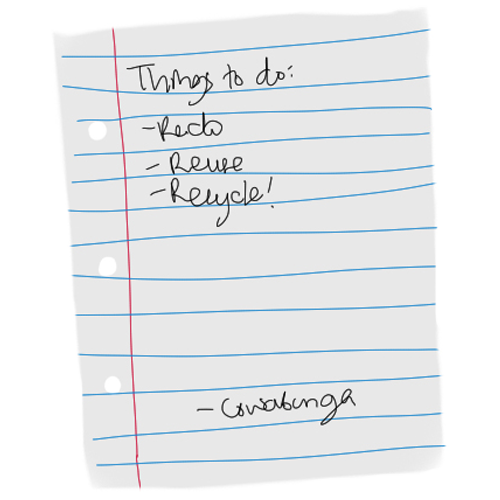 Things to do:
- Redo
- Reuse
- Recycle!
- Cowabunga